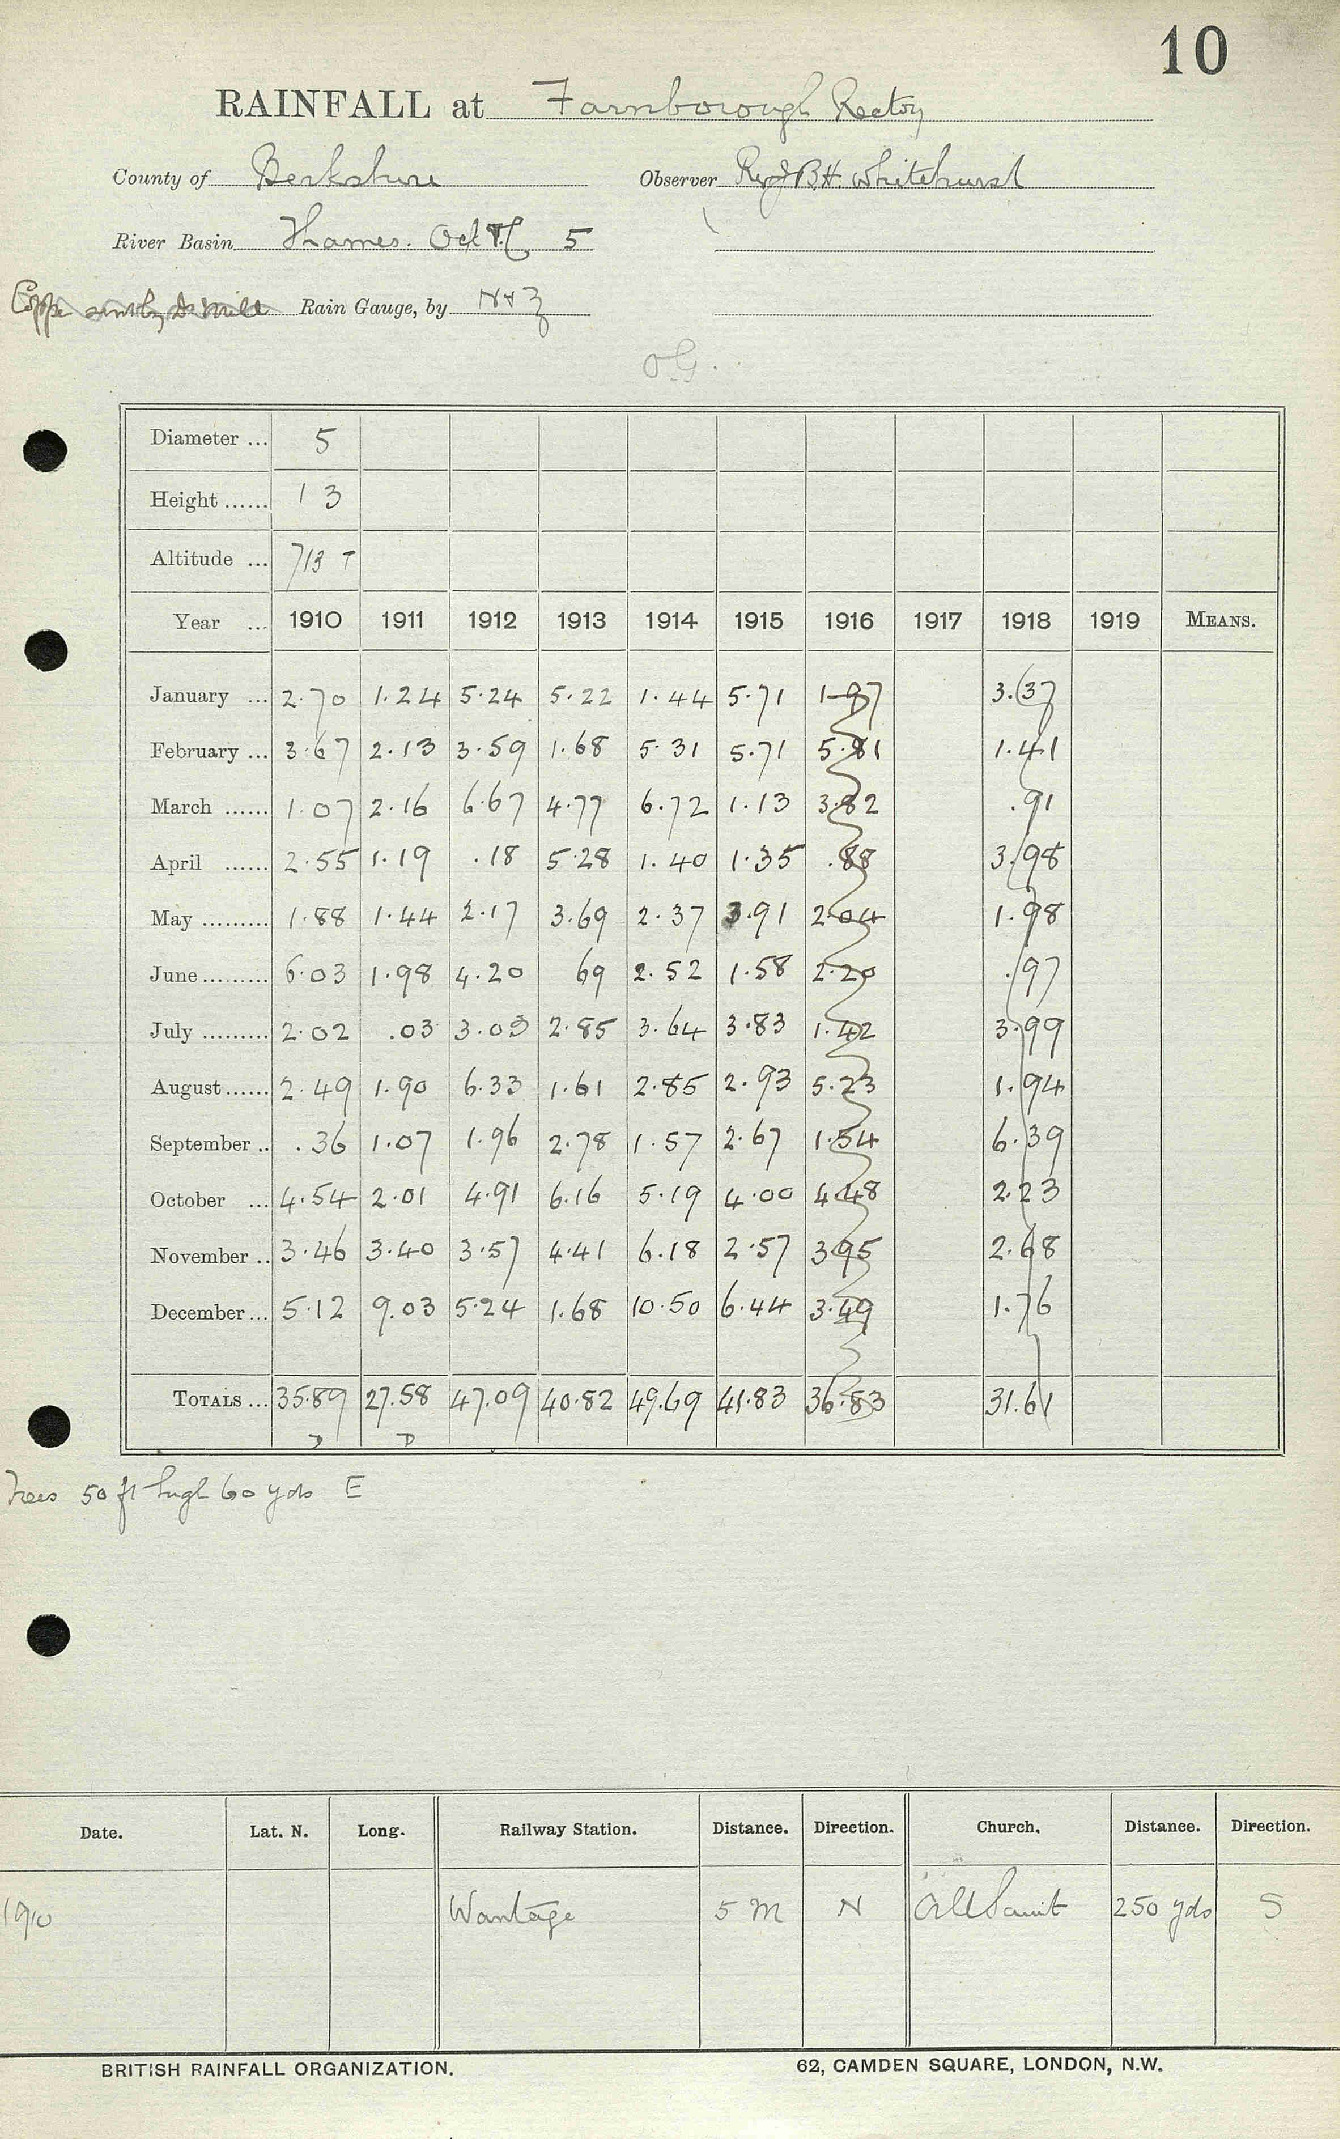 10
RAINFALL at Farnborough Rectory
County of Berkshire Observer Revd B H Whitehurst
River Basin Thames. 5
Rain Gauge, by N+Z
OG.
Diameter ... 5
Height ...... 1 3
Altitude ... 713 T
Year ... 1910 1911 1912 1913 1914 1915 1916 1917 1918 1919 MEANS.
January ... 2.70 1.24 5.24 5.22 1.44 5.71 1.97 3.37
February ... 3.67 2.13 3.59 1.68 5.31 5.71 5.81 1.41
March ...... 1.07 2.16 6.67 4.77 6.72 1.13 3.82 .91
April ...... 2.55 1.19 .18 5.28 1.40 1.35 .88 3.98
May ......... 1.88 1.44 2.17 3.69 2.37 3.91 2.04 1.98
June ......... 6.03 1.98 4.20 69 2.52 1.58 2.20 .97
July ......... 2.02 .03 3.03 2.85 3.64 3.83 1.42 3.99
August ...... 2.49 1.90 6.33 1.61 2.85 2.93 5.23 1.94
September .. .36 1.07 1.96 2.78 1.57 2.67 1.54 6.39
October ... 4.54 2.01 4.91 6.16 5.19 4.00 4.48 2.23
November .. 3.46 3.40 3.57 4.41 6.18 2.57 3.95 2.68
December ... 5.12 9.03 5.24 1.68 10.50 6.44 3.49 1.76
TOTALS ... 35.89 27.58 47.09 40.82 49.69 41.83 36.83 31.61
D D
Trees 50 ft high 60 yds E
Date. Lat. N. Long. Railway Station. Distance. Direction. Church. Distance. Direction.
1910 Wantage 5 M N All Saint 250 yds S
BRITISH RAINFALL ORGANIZATION. 62, CAMDEN SQUARE, LONDON, N.W.